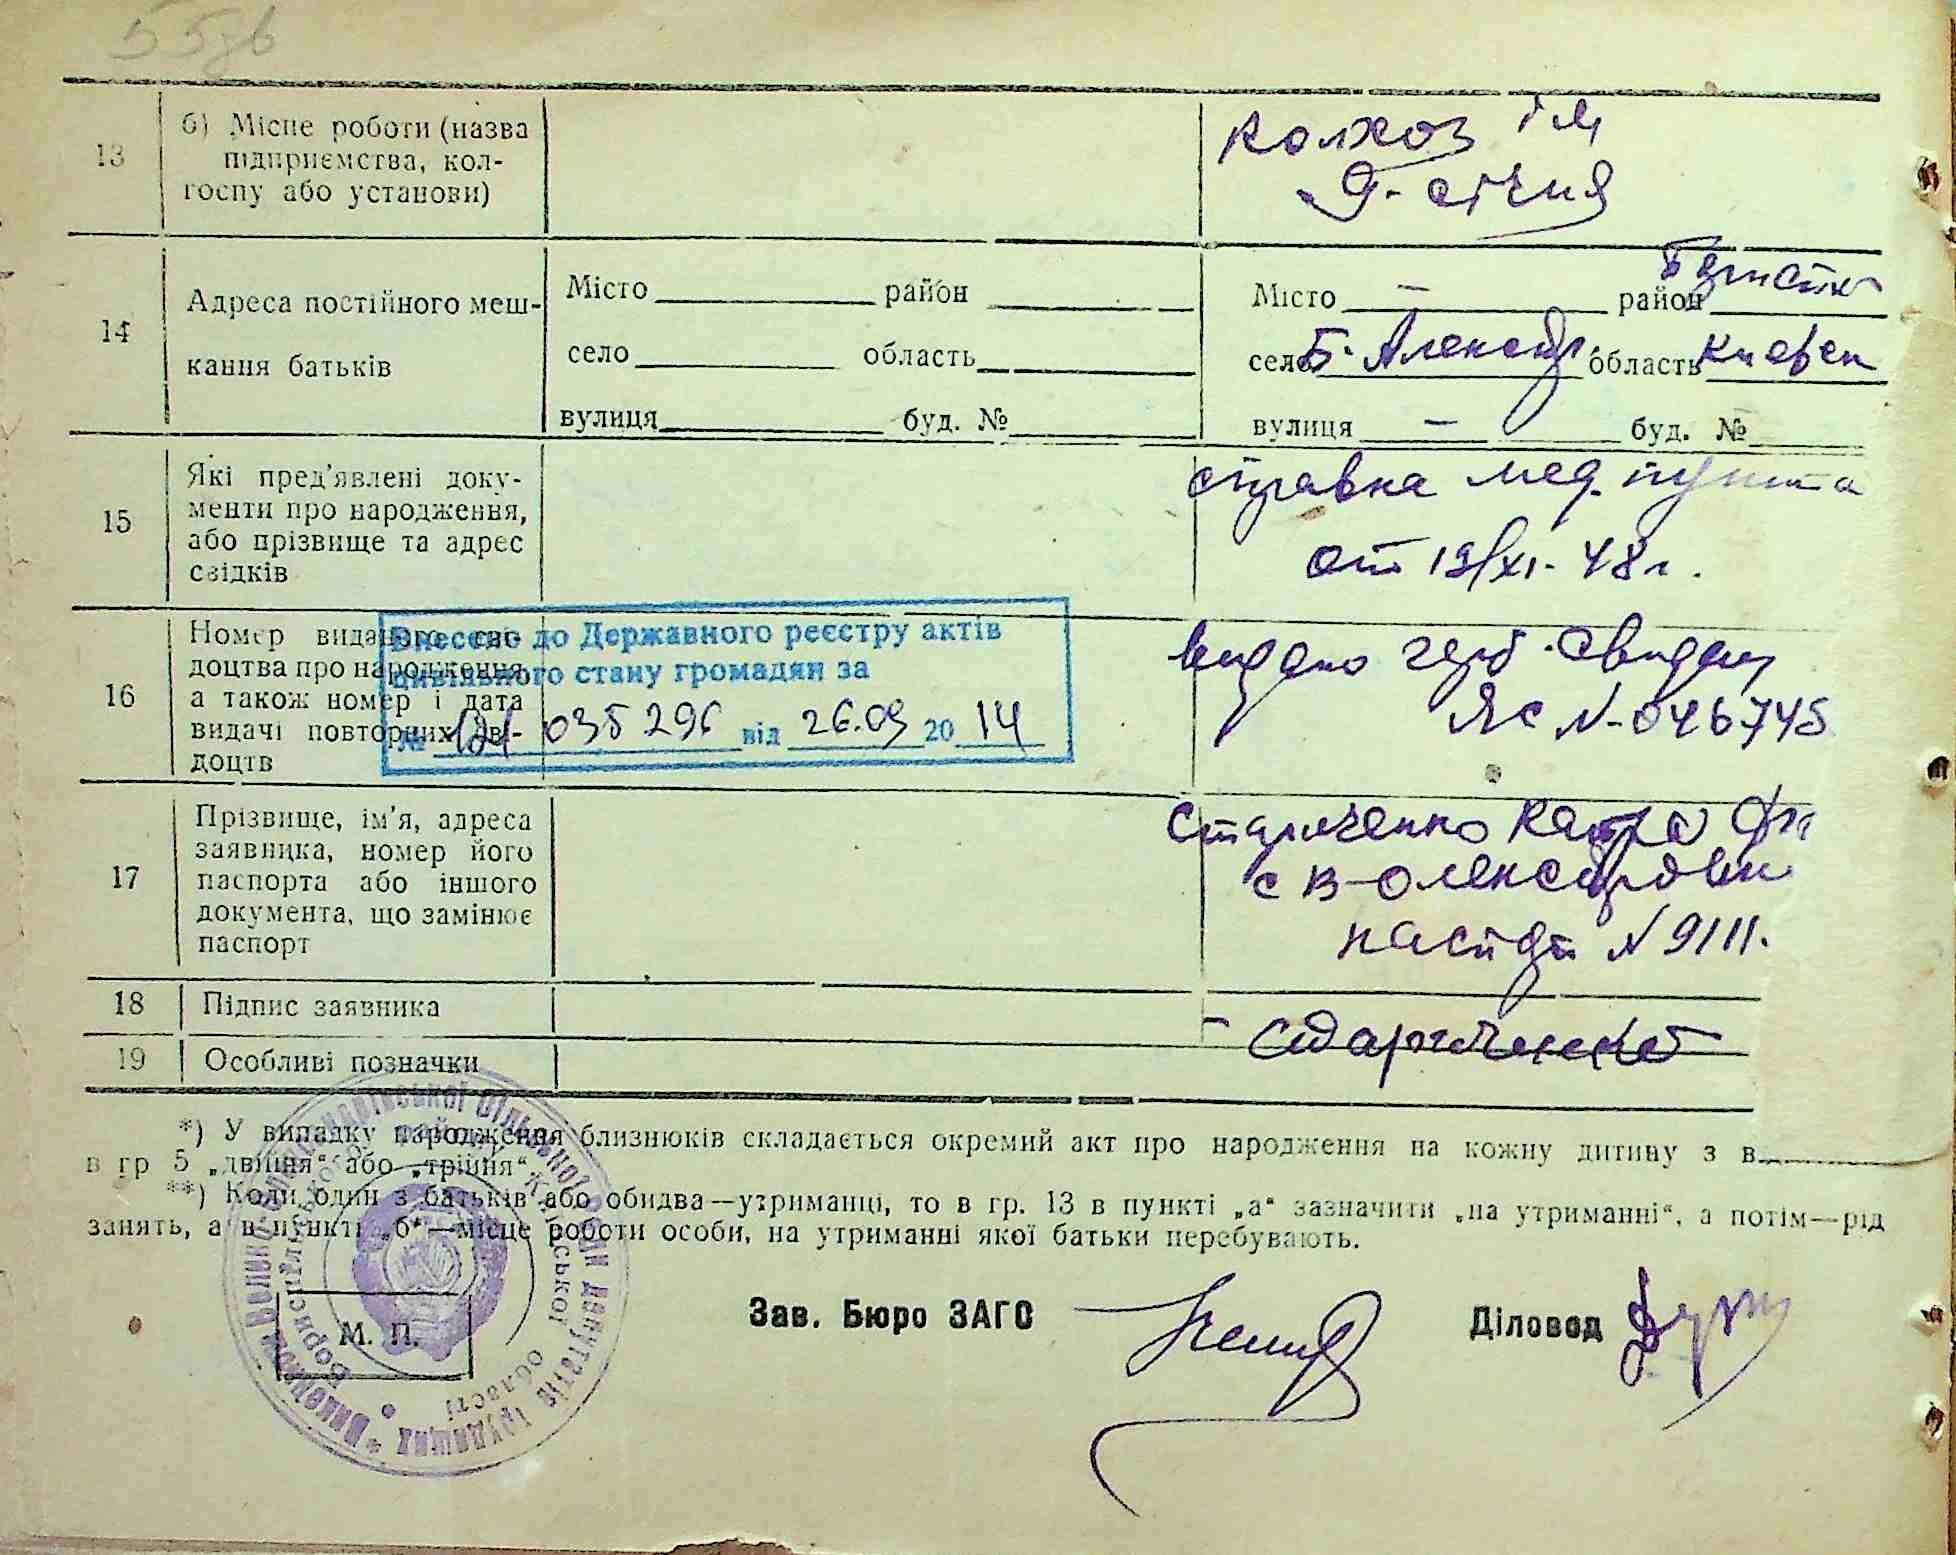 13
б) Місце роботи (назва
підприємства, кол-
госпу або установи)
колхоз ім
9-січня
14
Адреса постійного меш-
кання батьків
Місто район
село область
вулиця буд. №
Місто — район
село Б. Александр. область Киевск
вулиця — буд. №
15
Які пред'явлені доку-
менти про народження,
або прізвище та адрес
свідків
справка мед. пункта
от 19/XI-48 г.
16
Номер виданого сві-
доцтва про народження
а також номер і дата
видачі повторних сві-
доцтв
Внесено до Державного реєстру актів
цивільного стану громадян за
№ 035296 від 26.09 2014
видано герб. свидет
ЯС N-046745
17
Прізвище, ім'я, адреса
заявника, номер його
паспорта або іншого
документа, що замінює
паспорт
с В-Олександровки
N 9111.
18
Підпис заявника
19
Особливі позначки
*) У випадку народження близнюків складається окремий акт про народження на кожну дитину з в
в гр 5 „двійня“ або „трійня“.
**) Коли один з батьків або обидва—утриманці, то в гр. 13 в пункті „а“ зазначити „на утриманні“, а потім—рід
занять, а в пункті „б“—місце роботи особи, на утриманні якої батьки перебувають.
М. П.
Зав. Бюро ЗАГС
Діловод